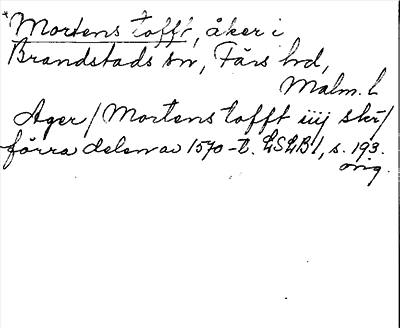 *Mortens tofft, åker i
Brandstads sn, Färs hrd,
Malm. l.
Ager / Mortens tofft iiij skr /
förra delen av 1570-t. LSLB 1, s. 193.
orig.